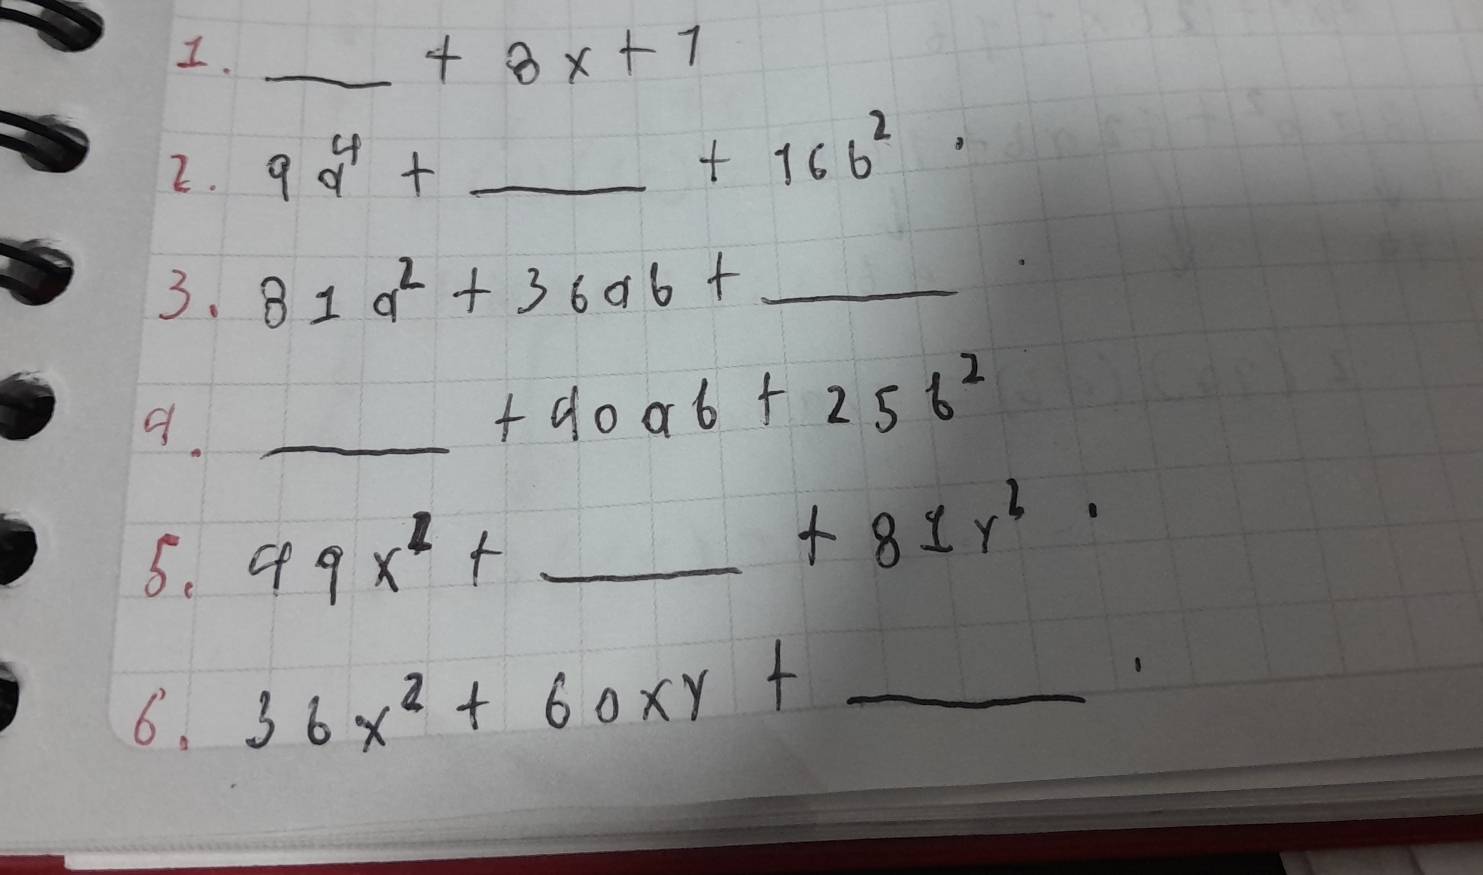 1. ___ + 8x + 1
2. 9a⁴ + ___ + 16b² .
3. 81a² + 36ab + ___ .
4. ___ + 40ab + 25b²
5. 49x² + ___ + 81y² .
6. 36x² + 60xy + ___ .